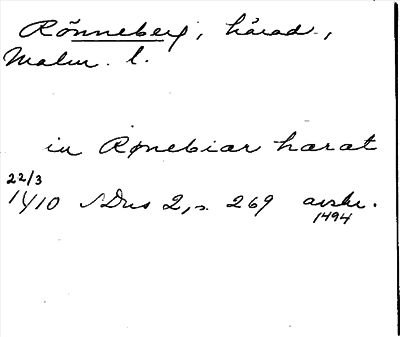 Rönneberg, härad,
Malm. l.
in Rønebiar harat
22/3
1410 SDns 2, s. 269 avskr.
1494